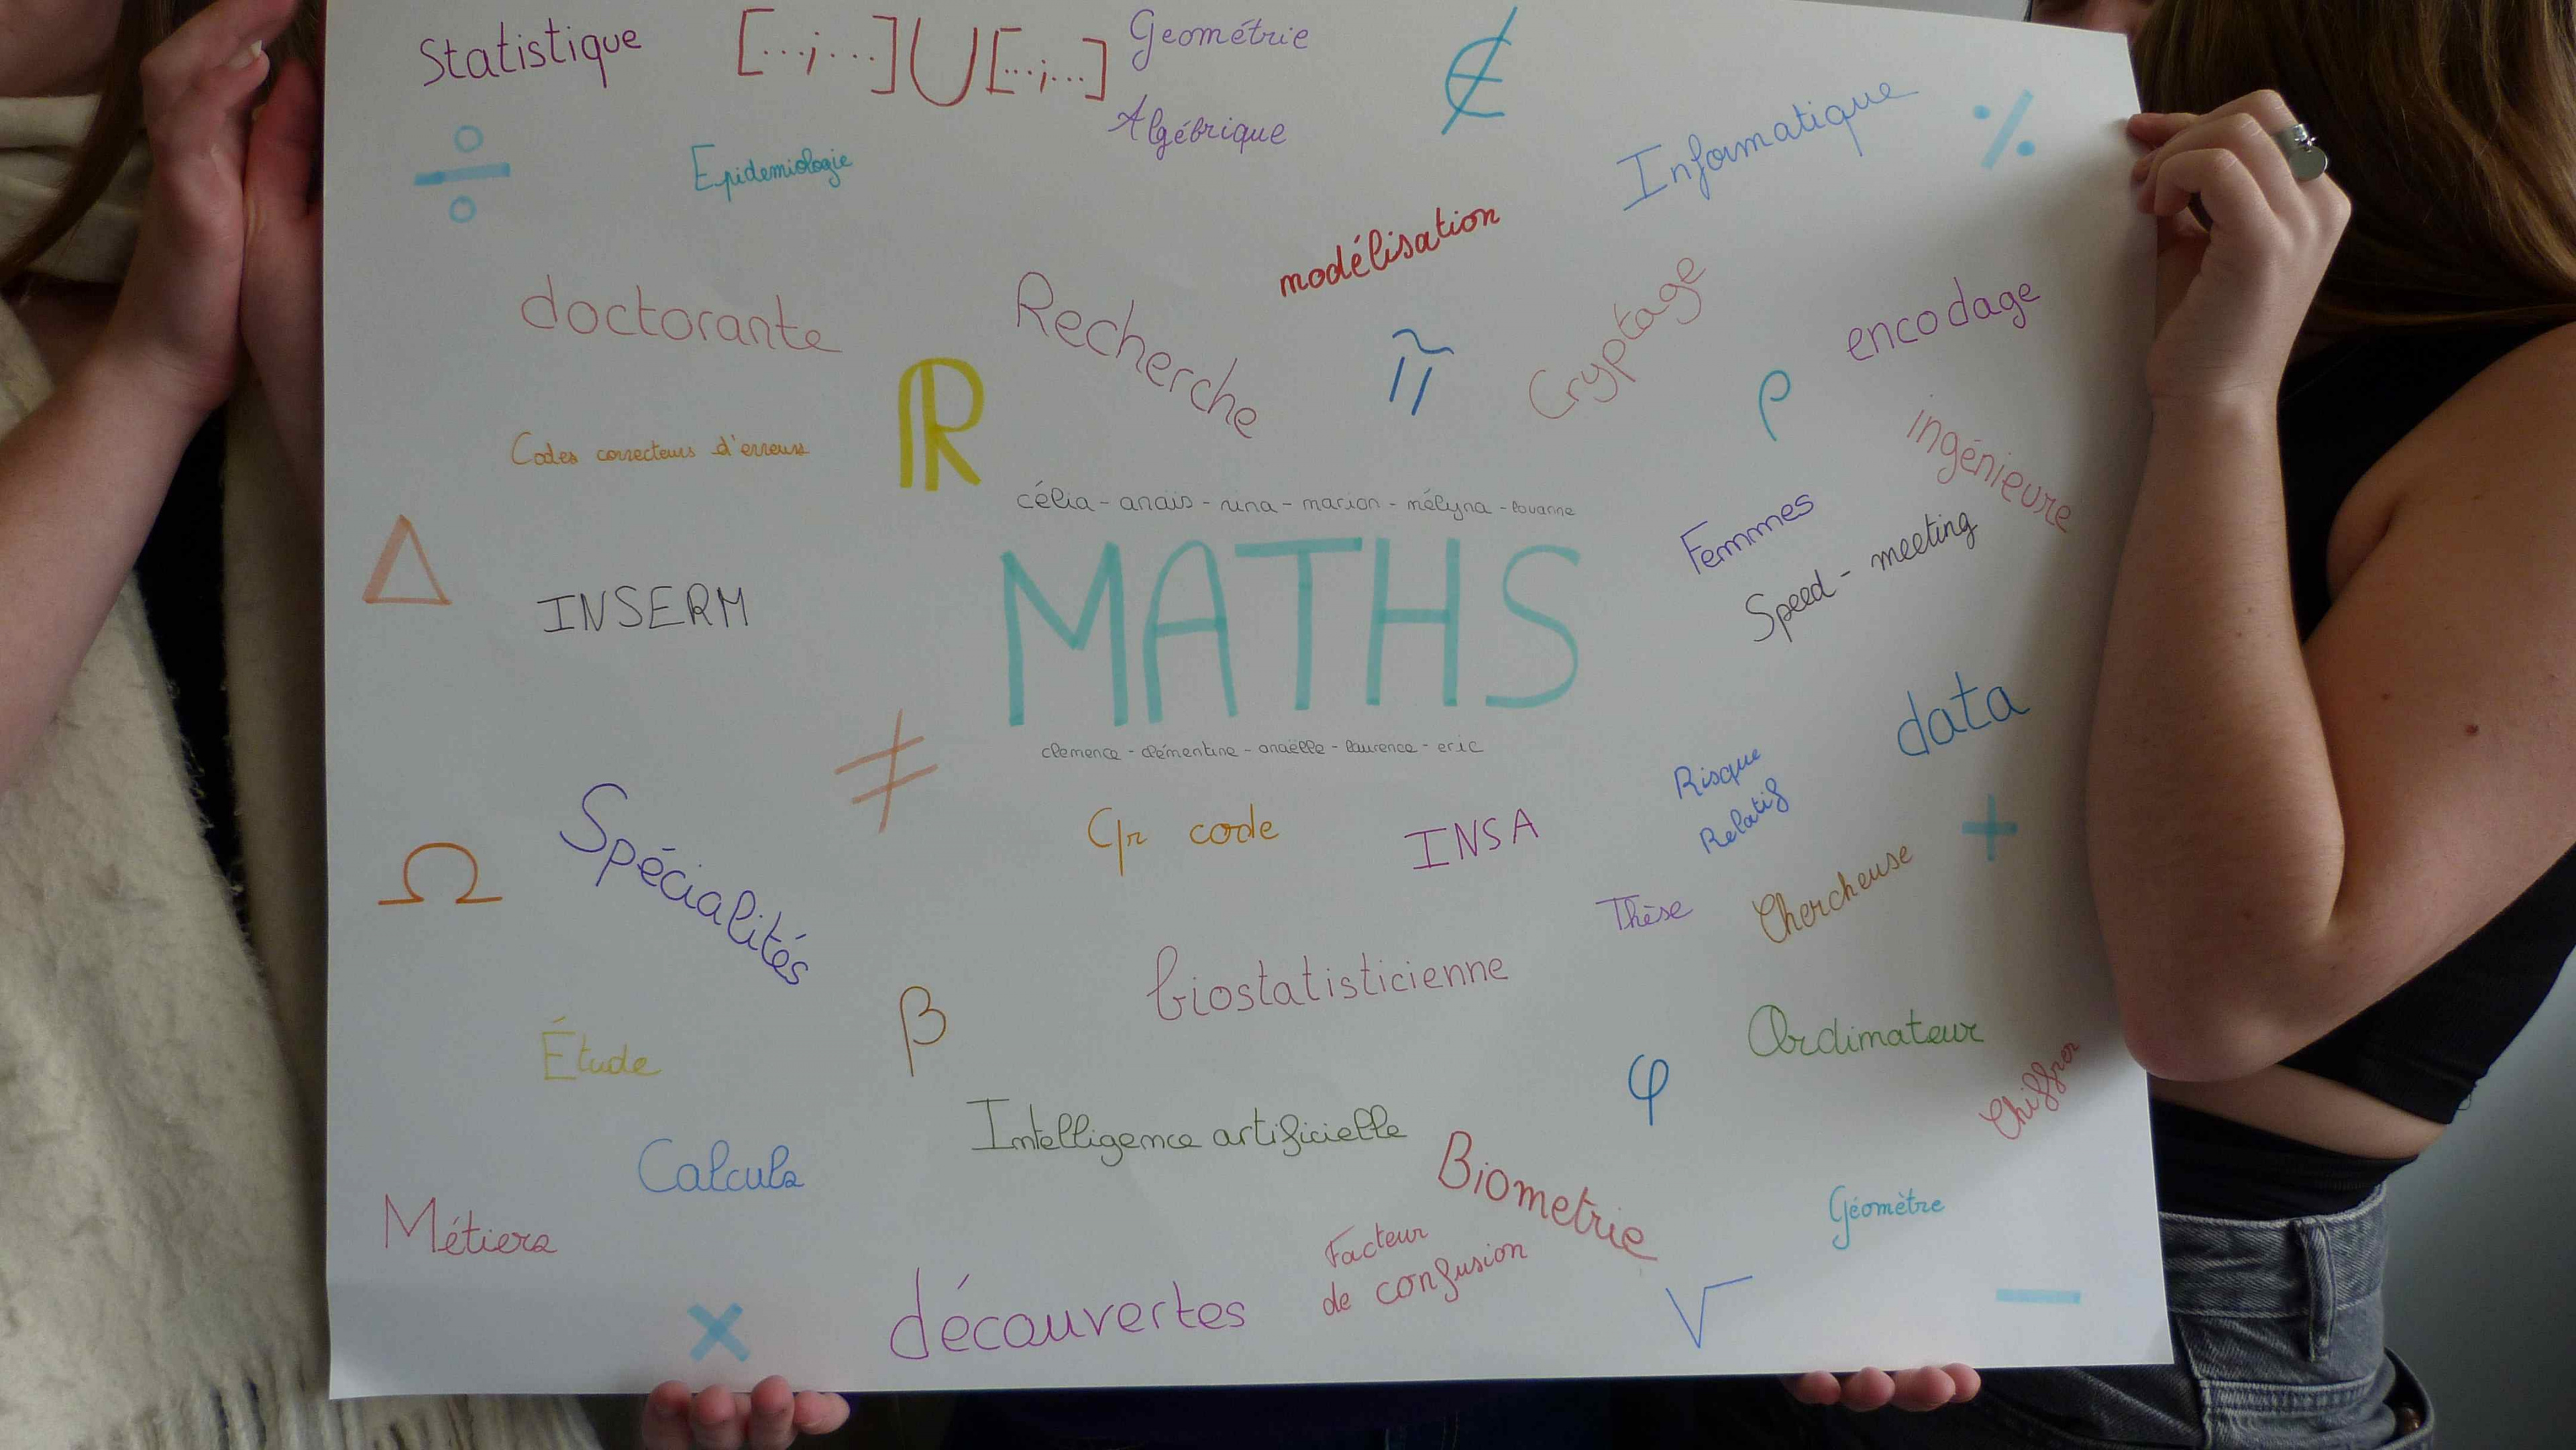 Statistique
[...;...]U[...;...]
Geométrie
Algébrique
∉
Informatique
%
÷
Epidemiologie
modélisation
doctorante
Recherche
π
Cryptage
encodage
ρ
ℝ
Codes correcteurs d'erreurs
ingénieure
célia - anaïs - nina - marion - mélyna - louanne
Femmes
Speed - meeting
Δ
INSERM
MATHS
clemence - clémentine - anaëlle - laurence - eric
data
≠
Risque
Relatif
+
Spécialités
Qr code
INSA
Ω
Thèse
Chercheuse
biostatisticienne
β
Étude
φ
Ordinateur
Chiffrer
Intelligence artificielle
Calculs
Biometrie
Métiers
Géomètre
Facteur
de confusion
×
découvertes
√
−